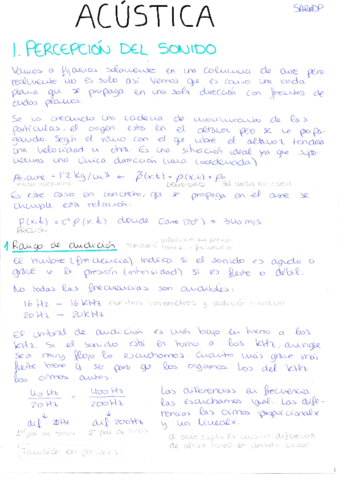 ACÚSTICA
1. PERCEPCIÓN DEL SONIDO
Vamos a fijarnos solamente en una columna de aire pero
realmente no es solo así. Vemos que es como una onda
plana que se propaga en una sola dirección con frentes de
ondas planos.
Se va creando una cadena de movimiento de las
partículas, el origen está en el altavoz pero se va propa-
gando. Según el ritmo con el que vibre el altavoz tendrá
una velocidad u otra. Es una situación ideal ya que supo-
nemos una única dirección (una coordenada)
Este caso en concreto, que se propaga en el aire se
cumple esta relación:
donde Caire (20°) = 340 m/s
PRESIÓN
1 Rango de audición
El timbre (frecuencia) indica si el sonido es agudo o
grave y la presión (intensidad) si es fuerte o débil.
No todas las frecuencias son audibles:
16 Hz - 16 KHz
20 Hz - 20 KHz
El umbral de audición es más bajo en torno a los
KHz. Si el sonido está en torno a los KHz, aunque
sea muy flojo lo escuchamos cuanto más grave más
fuerte tiene q se para que los oigamos. Los del KHz
los oímos antes.
40 Hz / 20 Hz = 400 Hz / 200 Hz
dif = 20Hz dif 200Hz
Las diferencias en frecuencia
las escuchamos igual. Las dife-
rencias las oímos proporcional
y no lineal
También en presión